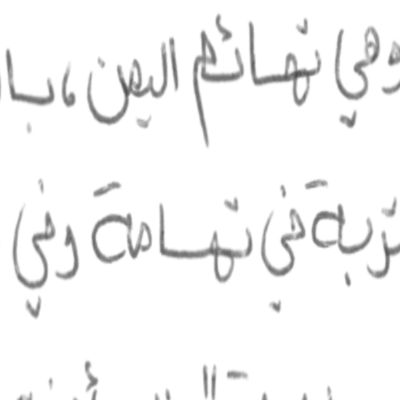 وهي تهائم اليمن، با
تربة في تهامة وفي